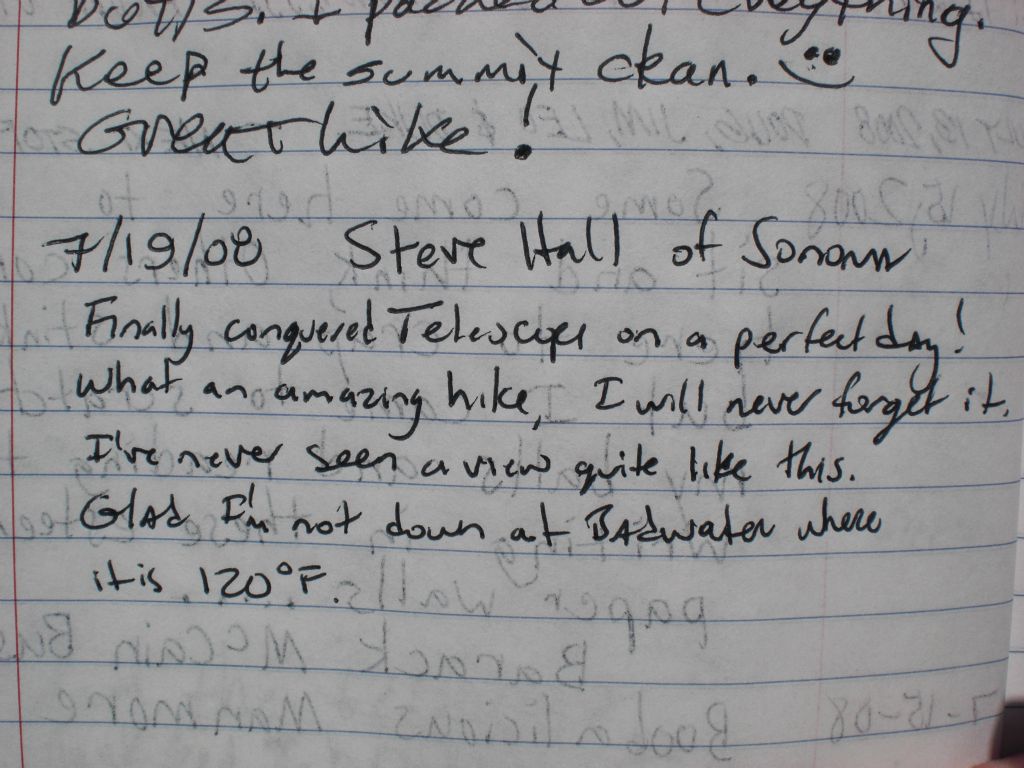 I packed out everything.
Keep the summit clean.
Great hike!
7/19/08 Steve Hall of Sonoma
Finally conquered Telescope on a perfect day!
What an amazing hike, I will never forget it.
I've never seen a view quite like this.
Glad I'm not down at Badwater where
it is 120°F.